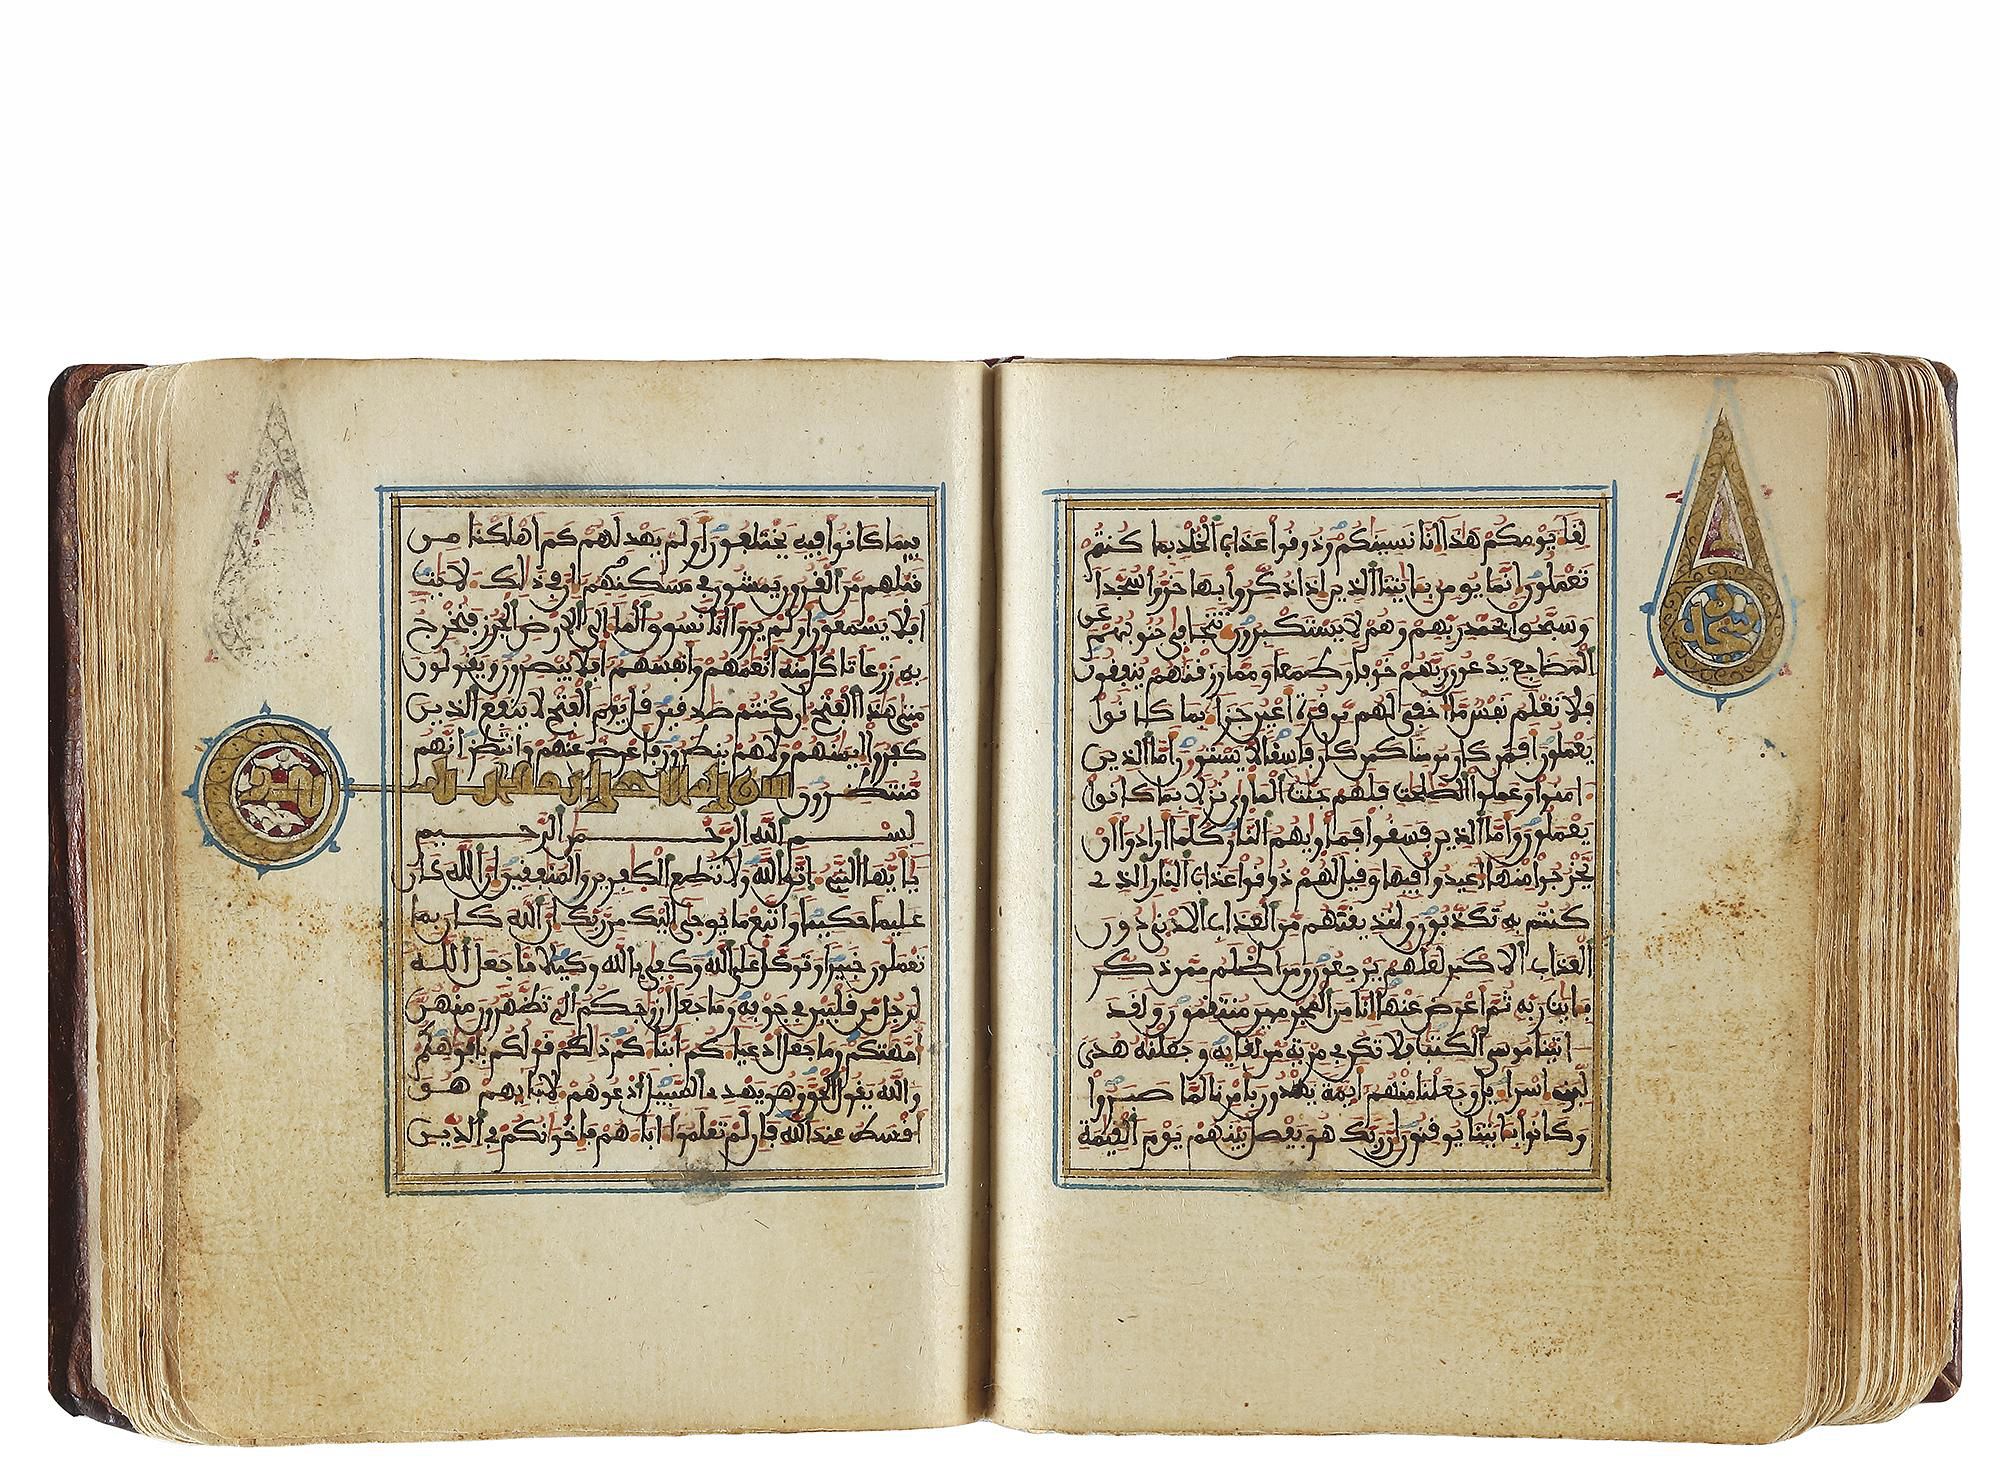 لقاء يومكم هذا إنا نسينكم وذوقوا عذاب الخلد بما كنتم
تعملون إنما يومن بـايتنا الذين إذا ذكروا بها خروا سجدا
وسبحوا بحمد ربهم وهم لا يستكبرون تتجافى جنوبهم عن
المضاجع يدعون ربهم خوفا وطمعا ومما رزقنهم ينفقون
فلا تعلم نفس ما أخفي لهم من قرة أعين جزاء بما كانوا
يعملون أفمن كان مومنا كمن كان فاسقا لا يستوون أما الذين
ءامنوا وعملوا الصلحت فلهم جنت الماوى نزلا بما كانوا
يعملون وأما الذين فسقوا فماويهم النار كلما أرادوا أن
يخرجوا منها أعيدوا فيها وقيل لهم ذوقوا عذاب النار الذي
كنتم به تكذبون ولنذيقنهم من العذاب الادنى دون
العذاب الاكبر لعلهم يرجعون ومن اظلم ممن ذكر
بـايت ربه ثم أعرض عنها إنا من المجرمين منتقمون ولقد
ءاتينا موسى الكتب فلا تكن في مرية من لقايه وجعلنه هدى
لبني إسراءيل وجعلنا منهم أيمة يهدون بأمرنا لما صبروا
وكانوا بـايتنا يوقنون إن ربك هو يفصل بينهم يوم القيمة
فيما كانوا فيه يختلفون أولم يهد لهم كم أهلكنا من
قبلهم من القرون يمشون في مسكنهم إن في ذلك لايت
أفلا يسمعون أولم يروا أنا نسوق الماء إلى الارض الجرز فنخرج
به زرعا تاكل منه أنعمهم وأنفسهم أفلا يبصرون ويقولون
متى هذا الفتح إن كنتم صدقين قل يوم الفتح لا ينفع الذين
كفروا إيمنهم ولا هم ينظرون فأعرض عنهم وانتظر إنهم
منتظرون
بسم الله الرحمن الرحيم
يأيها النبيء اتق الله ولا تطع الكفرين والمنفقين إن الله كان
عليما حكيما واتبع ما يوحى إليك من ربك إن الله كان بما
تعملون خبيرا وتوكل على الله وكفى بالله وكيلا ما جعل الله
لرجل من قلبين في جوفه وما جعل أزوجكم الي تظهرون منهن
أمهتكم وما جعل أدعياءكم أبناءكم ذلكم قولكم بأفوهكم
والله يقول الحق وهو يهدي السبيل ادعوهم لابايهم هو
أقسط عند الله فإن لم تعلموا ءاباءهم فإخونكم في الدين